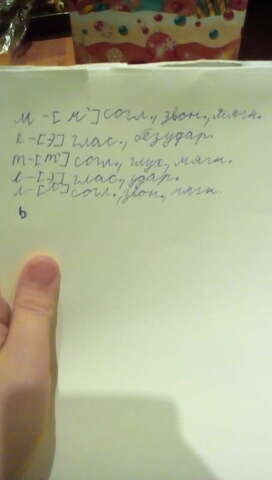 м - [м'] согл., звон., мягк.
е - [э] глас., безудар.
т - [т'] согл., глух., мягк.
е - [э] глас., удар.
л - [л'] согл., звон., мягк.
ь